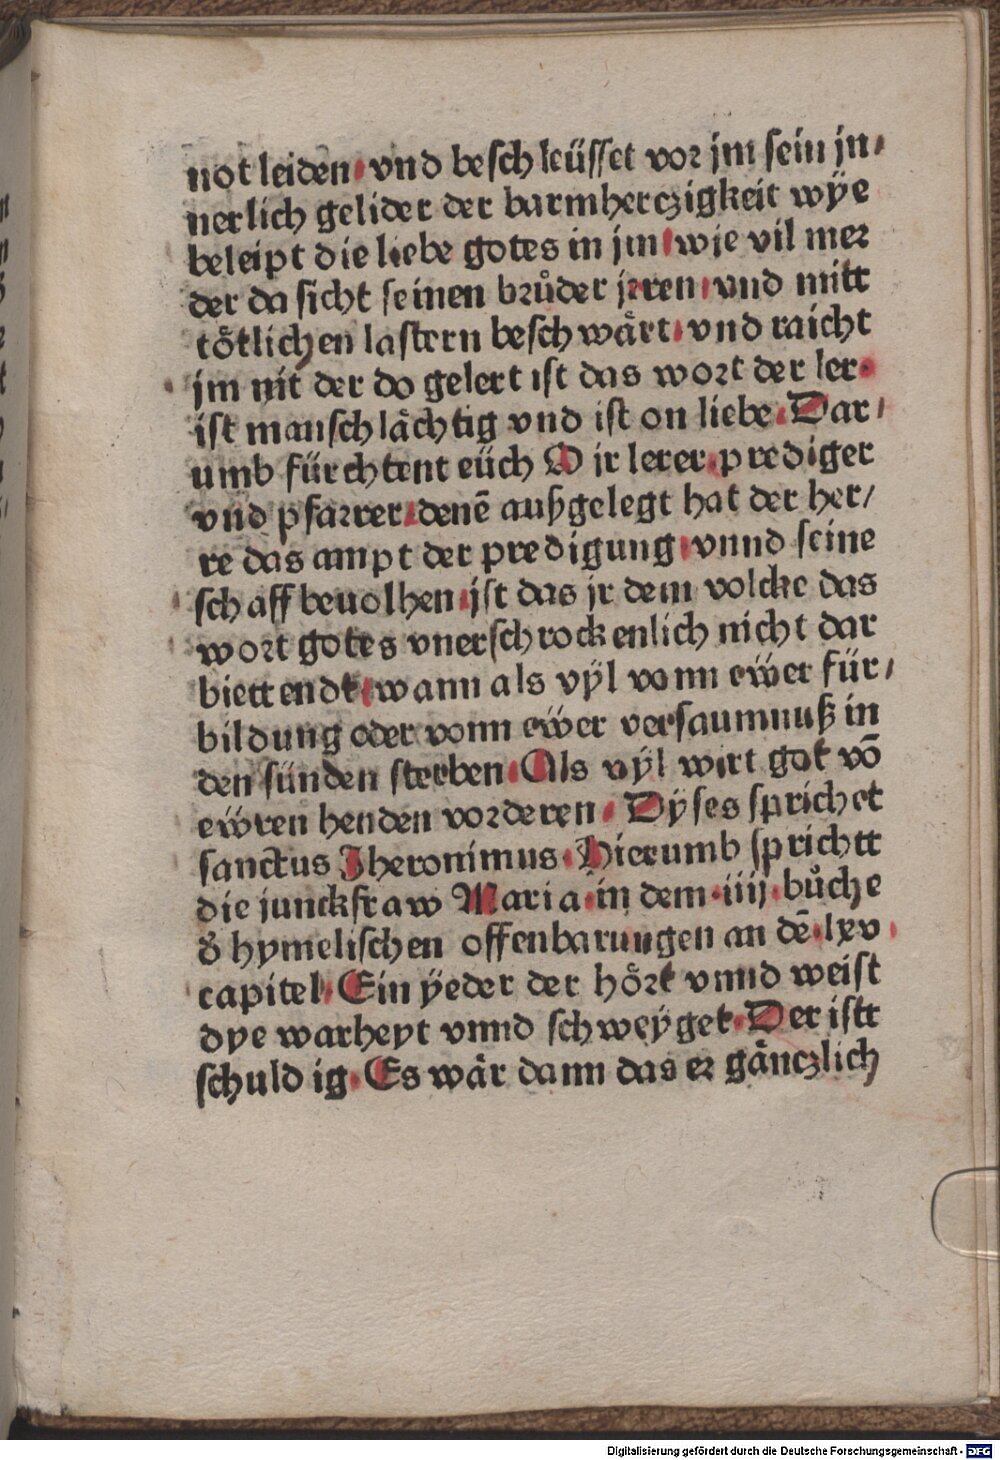 not leiden· vnd beschleüsset vor jm sein jn/
nerlich gelider der barmherczigkeit wÿe
beleipt die liebe gotes in jm· wie vil mer
der da sicht seinen brůder jrren· vnd mitt
tötlichen lastern beschwärt· vnd raicht
jm nit der do gelert ist das wort der ler·
ist manschlächtig vnd ist on liebe· Dar/
umb fürchtent eüch O ir lerer· prediger
vnd pfarrer· denē außgelegt hat der her/
re das ampt der predigung· vnnd seine
schaff beuolhen· jst das jr dem volcke das
wort gotes vnerschrockenlich nicht dar
biettendt· wann als vÿl vonn ewer für/
bildung oder vonn ewer versaumnuß in
den sünden sterben· Als vÿl wirt got võ
ewren henden vorderen· Dÿses sprichet
sanctus Jheronimus· Hierumb sprichtt
die junckfraw Maria· in dem· iiij· bůche
d̕ hymelischen offenbarungen an dē· lxv·
capitel· Ein ÿeder der hört vnnd weist
dye warheyt vnnd schweÿget· Der istt
schuldig· Es wär dann das er gänczlich
Digitalisierung gefördert durch die Deutsche Forschungsgemeinschaft - DFG